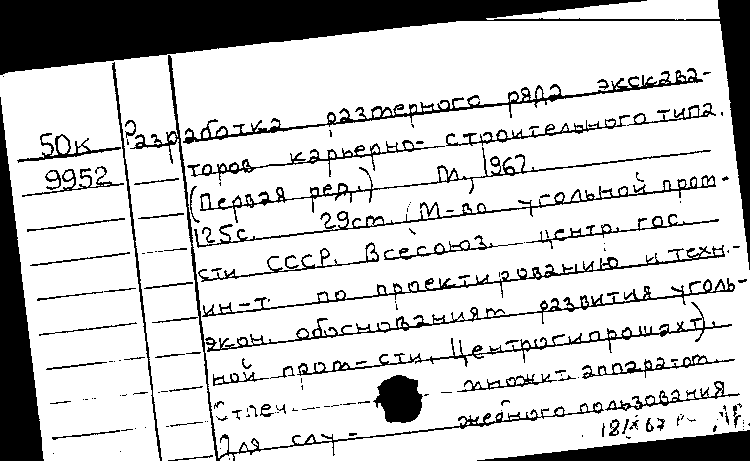 50к Разработка размерного ряда экскава-
9952 торов карьерно-строительного типа.
(Первая ред.) М., 1967.
125с. 29см. (М-во угольной пром-
сти СССР. Всесоюз. центр. гос.
ин-т по проектированию и техн.-
экон. обоснованиям развития уголь-
ной пром-сти, Центрогипрошахт).
Стлеч. множит. аппаратом.
Для слу- жебного пользования
67